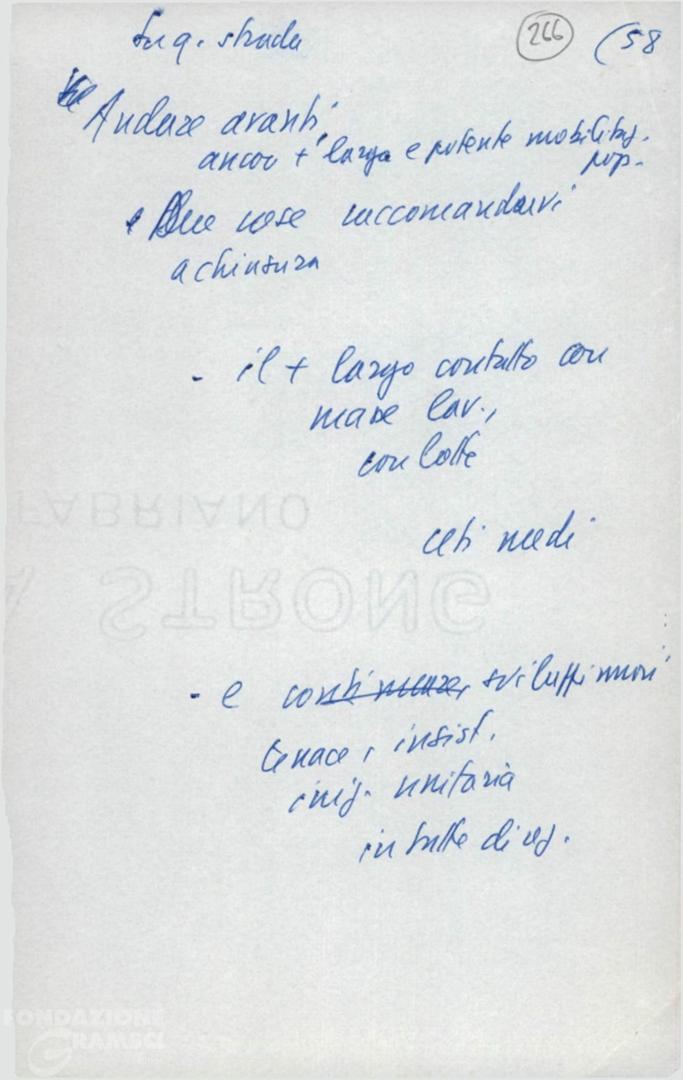 su q. strada
266 (58
Andare avanti,
ancor + larga e potente mobilitaz.
pop.
Due cose raccomandarvi
a chiusura
- il + largo contatto con
masse lav.,
con lotte
ceti medi
FABRIANO
STRONG
- e continuare, sviluppi nuovi
tenace, insist.
iniz. unitaria
in tutte direz.
FONDAZIONE
GRAMSCI